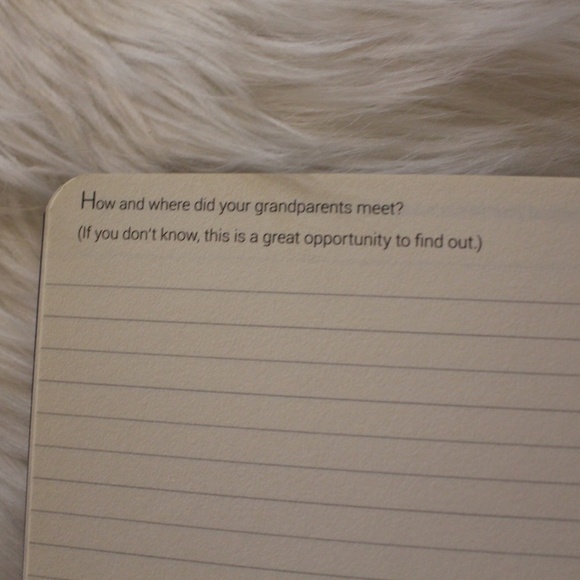 How and where did your grandparents meet?
(If you don't know, this is a great opportunity to find out.)